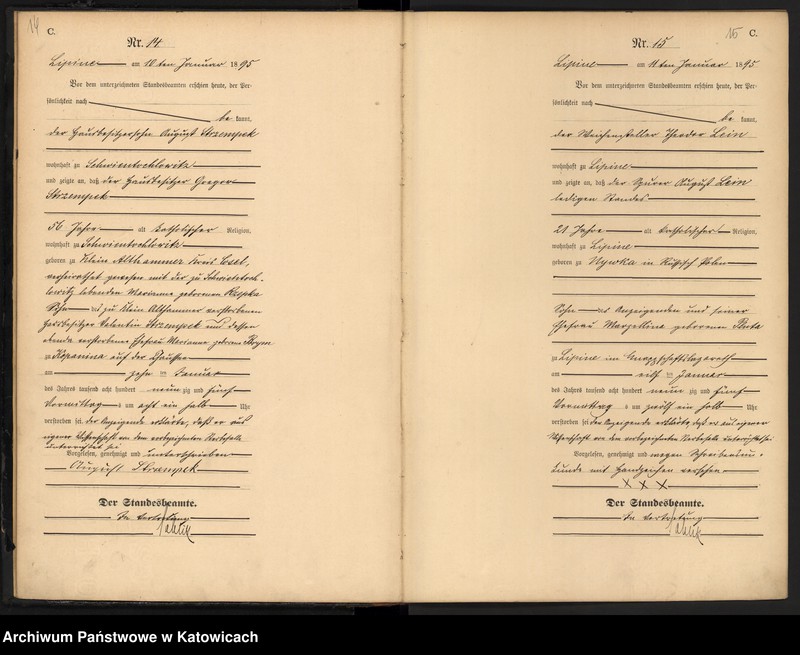 14 C.
Nr. 14
Lipine am 10ten Januar 1895
Vor dem unterzeichneten Standesbeamten erschien heute, der Per-
sönlichkeit nach
be kannt,
der Hausbesitzersohn August Strzempek
wohnhaft zu Schwientochlowitz
und zeigte an, daß der Hausbesitzer Gregor
Strzempek
56 Jahre alt katholischer Religion,
wohnhaft zu Schwientochlowitz
geboren zu Klein Althammer Kreis Cosel,
verheirathet gewesen mit der zu Schwientoch-
lowitz lebenden Marianne geborenen
Sohn des zu Klein Althammer verstorbenen
Hausbesitzer Valentin Strzempek und dessen
ebenda verstorbenen Ehefrau Marianne geborene
zu Kopanina auf der Chaussee
am zehn ten Januar
des Jahres tausend acht hundert neun zig und fünf
Vormittag s um acht ein halb Uhr
verstorben sei. der Anzeigende erklärte, daß er aus
eigener Wissenschaft von dem vorbezeichneten Sterbefalle
unterrichtet sei
Vorgelesen, genehmigt und unterschrieben
August Strzempek
Der Standesbeamte.
In Vertretung
15 C.
Nr. 15
Lipine am 11ten Januar 1895
Vor dem unterzeichneten Standesbeamten erschien heute, der Per-
sönlichkeit nach
be kannt,
der Weichensteller Theodor Lein
wohnhaft zu Lipine
und zeigte an, daß der August Lein
ledigen Standes
21 Jahre alt katholischer Religion,
wohnhaft zu Lipine
geboren zu Niwka in Russisch Polen
Sohn des Anzeigenden und seiner
Ehefrau Marzellina geborenen
zu Lipine im
am eilf ten Januar
des Jahres tausend acht hundert neun zig und fünf
Vormittag s um zwölf ein halb Uhr
verstorben sei. der Anzeigende erklärte, daß er aus eigener
Wissenschaft von dem vorbezeichneten Sterbefalle unterrichtet sei
Vorgelesen, genehmigt und wegen Schreibensun-
kunde mit Handzeichen versehen
X X X
Der Standesbeamte.
In Vertretung
Archiwum Państwowe w Katowicach